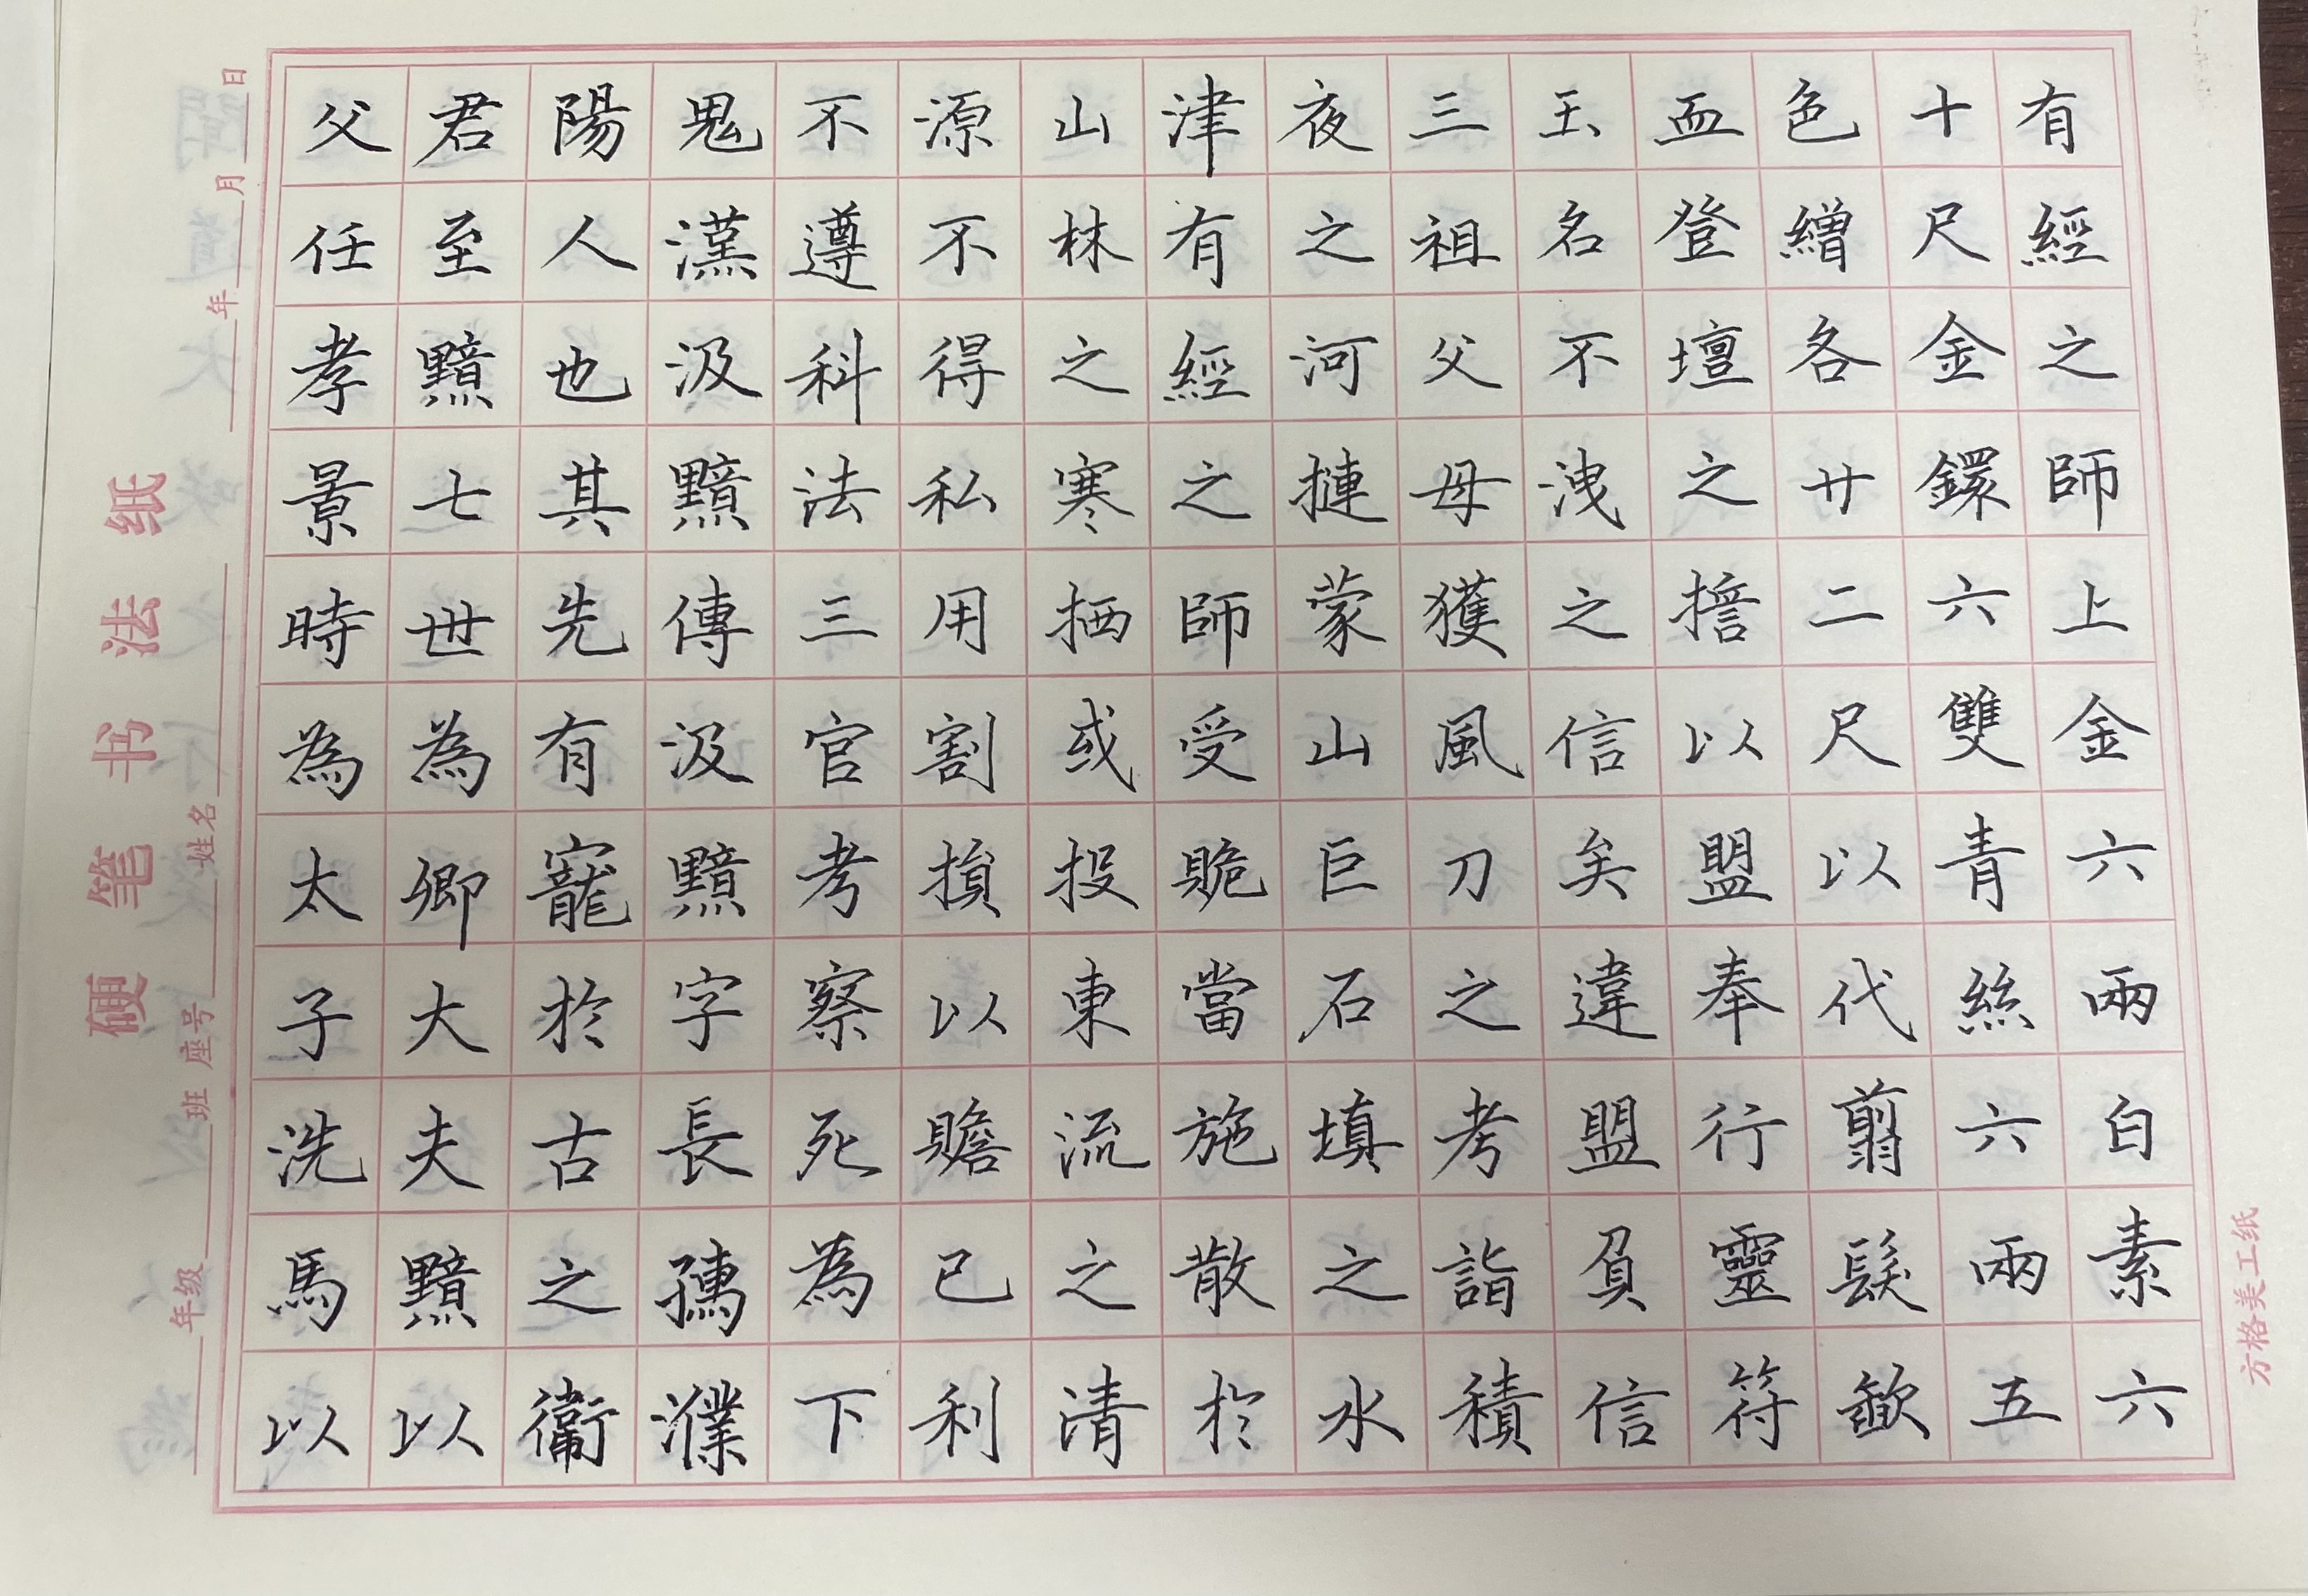 有經之師上金六兩白素六
十尺金鐶六雙青絲六兩五
色繒各廿二尺以代翦髮歃
血登壇之擔以盟奉行靈符
玉名不洩之信矣違盟負信
三祖父母獲風刀之考詣積
夜之河摙蒙山巨石填之水
津有經之師受䞈當施散於
山林之寒栖或投東流之清
源不得私用割損以贍己利
不遵科法三官考察死為下
鬼漢汲黯傳汲黯字長孺濮
陽人也其先有寵於古之衛
君至黯七世為卿大夫黯以
父任孝景時為太子洗馬以
硬笔书法纸
年级 班 座号 姓名 年 月 日
方格美工纸